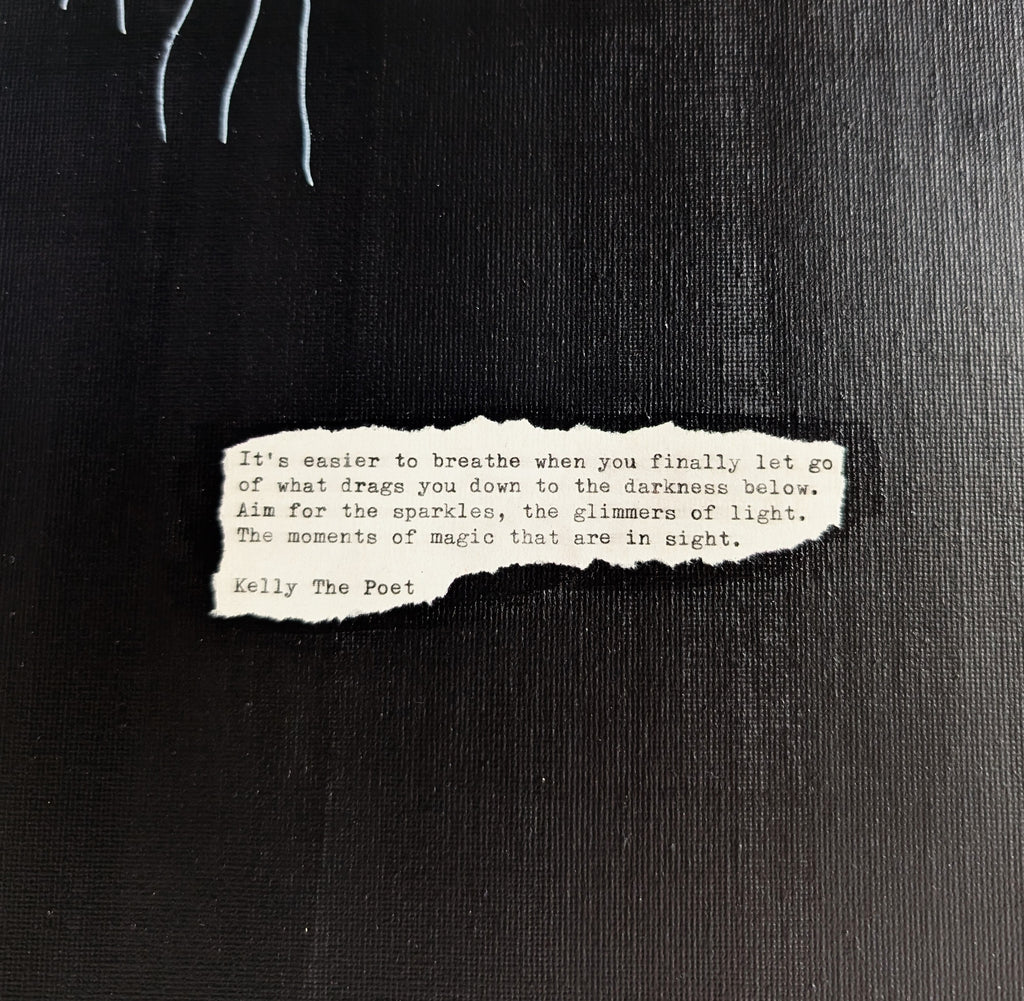 It's easier to breathe when you finally let go
of what drags you down to the darkness below.
Aim for the sparkles, the glimmers of light.
The moments of magic that are in sight.
Kelly The Poet